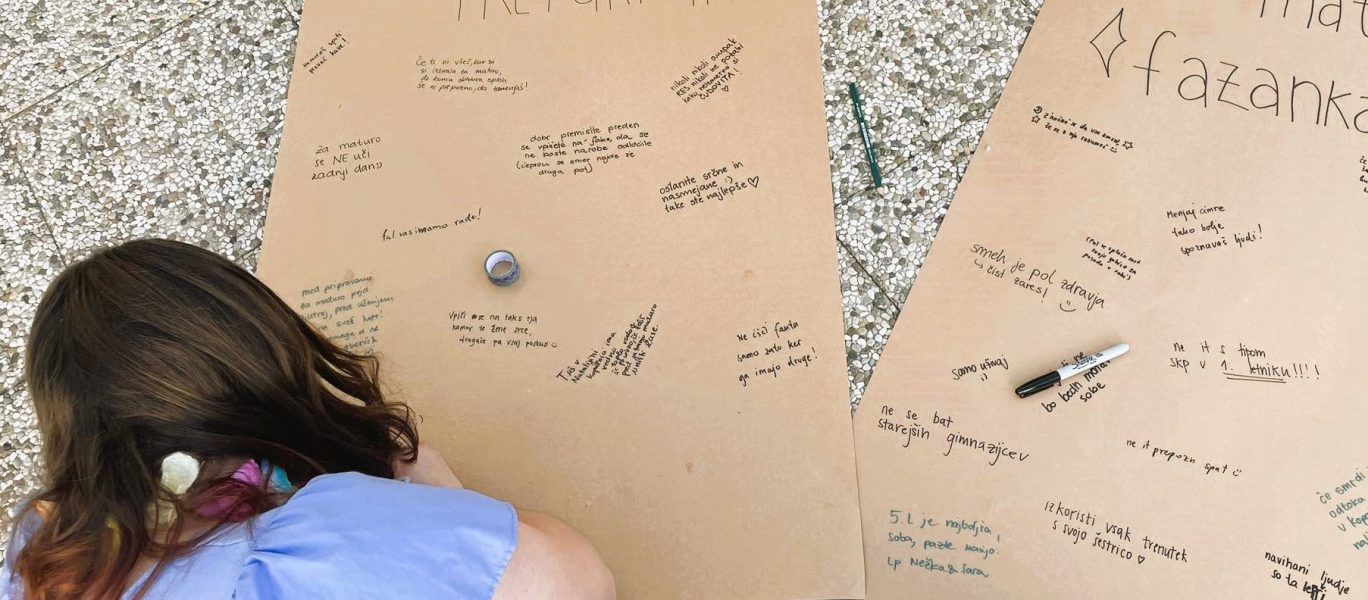 Če ti ni všeč, kar si
si izbrala za maturo,
do konca oktobra sploh
se ni prepozno, da zamenjaš!
nikoli nikoli ampak
RES nikoli ne pozabi
kako neverjetno si
ČUDOVITA!
za maturo
se NE uči
zadnji dan:)
dobr premislite preden
se vpišete na faks, da se
ne boste narobe odločile
(čeprou se zmer najde še
druga pot)
ostanite srčne in
nasmejane :)
take ste najlepše ♡
ful vas imamo rade!
med pripravami
za maturo pejd
pred učenjem
Vpiši se na faks tja
kamor te žene srce,
drugače pa vsaj poskusi
Ne išči fanta
samo zato ker
ga imajo druge!
mat
fazank
Menjaj cimre
tako bolje
spoznavaš ljudi!
smeh je pol zdravja
↳ čist zares! :)
samo uživaj
:)
bo bedn
sobe
ne it s tipom
SKP v 1. letniku!!!!
ne se bat
starejših gimnazijcev
ne it prepozn spat :)
5.L je najboljša
soba, pazte nanjo.
Lp Nežka & Sara
izkoristi vsak trenutek
s svojo šestrico ♡
če smrdi
odtoka
v kop
navihani ljudje
so ta lepši!